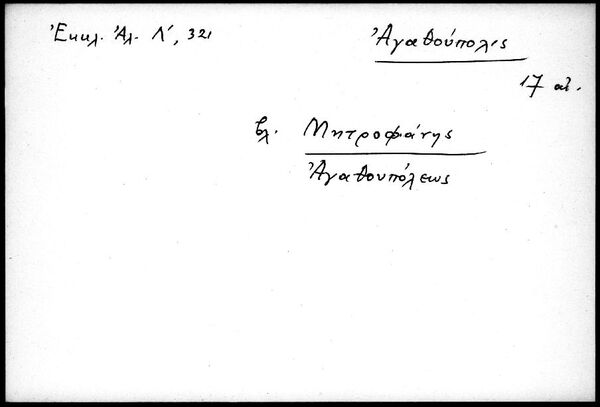 Ἐκκλ. Ἀλ. Λʹ, 321
Ἀγαθούπολις
17 αἰ.
βλ. Μητροφάνης
Ἀγαθουπόλεως